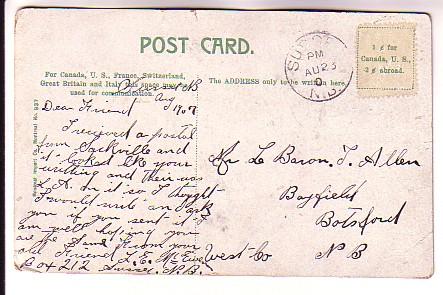 POST CARD.
For Canada, U. S., France, Switzerland,
Great Britain and Italy this space may be
used for communication.
The ADDRESS only to be written here.
1¢ for
Canada, U. S.,
2¢ abroad.
SUSSEX
PM
AU 23
0
N.B.
Sussex N B
Aug 1907
Dear Friend
I received a postal
from Sackville and
it looked like your
writing and their was
L. A. on it so I thought
I would write and ask
you if you sent it. I
am well hoping you
are the same from your
old Friend L. E. McFee
Box 212 Sussex N.B.
Mr Le Baron. T. Allen
Bayfield
Botsford
West Co
N B